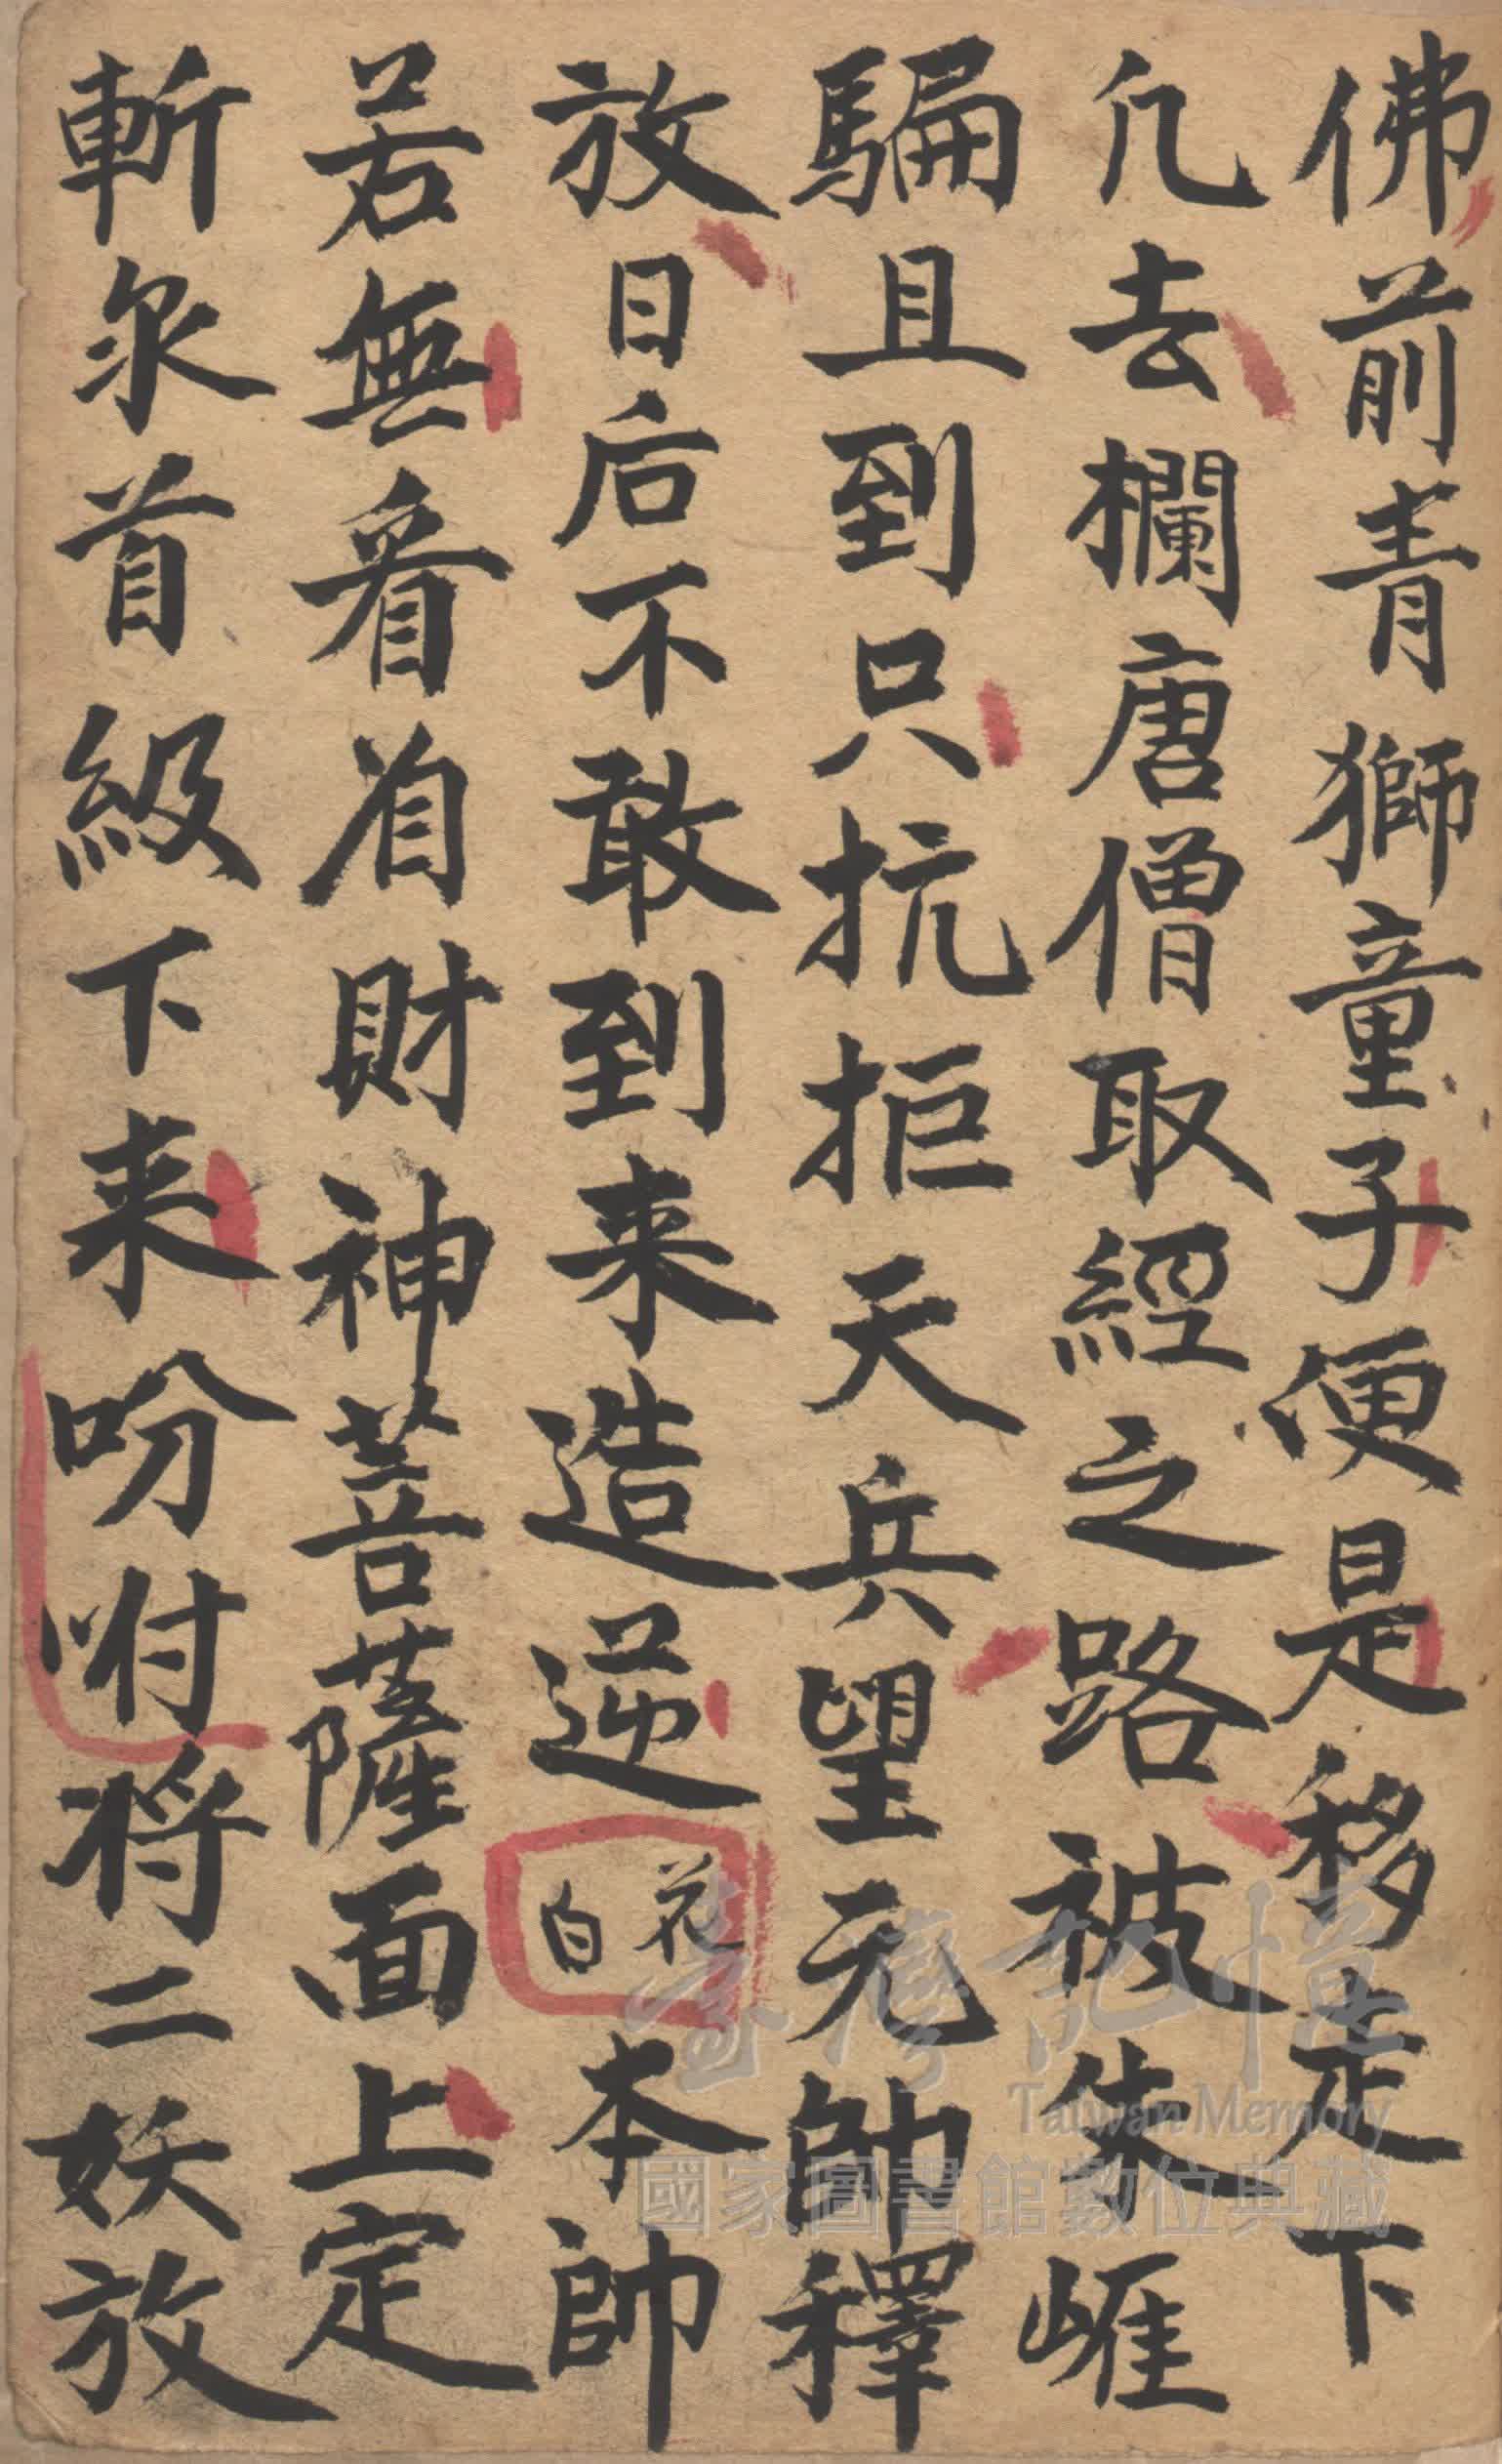 佛前青獅童子便是移走下
凢去欄唐僧取經之路被朱崕
騙且到只抗拒天兵望元帥釋
放日后不敢到来造逆花白本帥
若無看眉財神菩薩面上定
斬汆首級下来吩咐将二妖放
臺灣記憶
Taiwan Memory
國家圖書館數位典藏